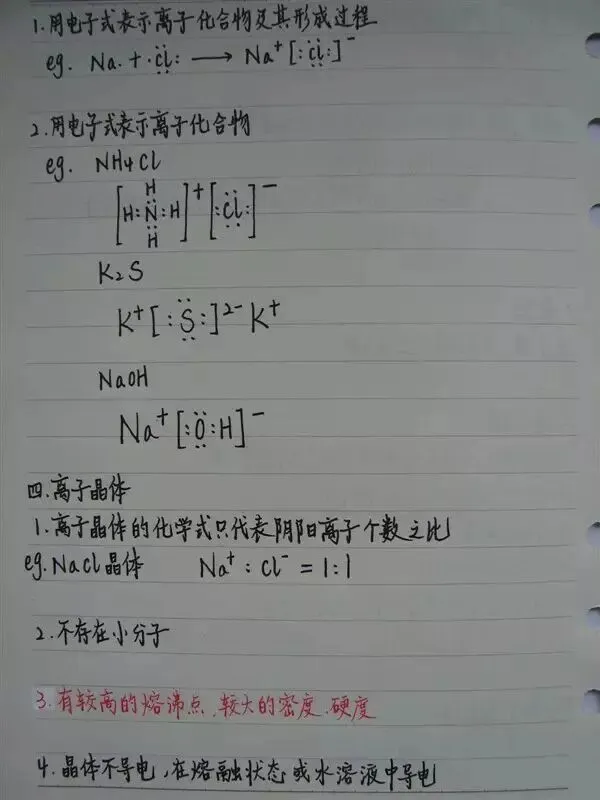 1.用电子式表示离子化合物及其形成过程
eg. Na· + ·Cl: ⟶ Na⁺[:Cl:]⁻
2.用电子式表示离子化合物
eg. NH4Cl
H
[H:N:H]⁺[:Cl:]⁻
H
K₂S
K⁺[:S:]²⁻K⁺
NaOH
Na⁺[:O:H]⁻
四.离子晶体
1.离子晶体的化学式只代表阴阳离子个数之比
eg.NaCl晶体 Na⁺:Cl⁻=1:1
2.不存在小分子
3.有较高的熔沸点、较大的密度、硬度
4.晶体不导电,在熔融状态或水溶液中导电